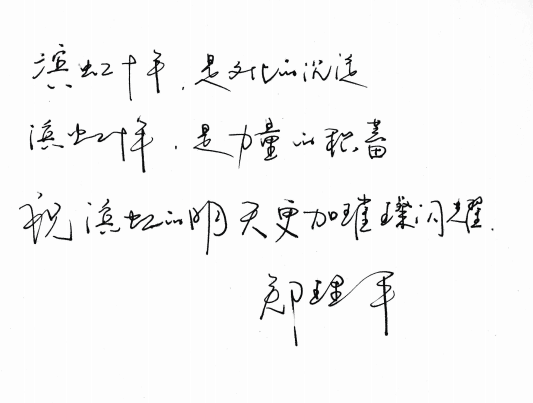 滨虹十年,是文化的沉淀
滨虹十年,是力量的积蓄
祝滨虹的明天更加璀璨闪耀.
郑理平